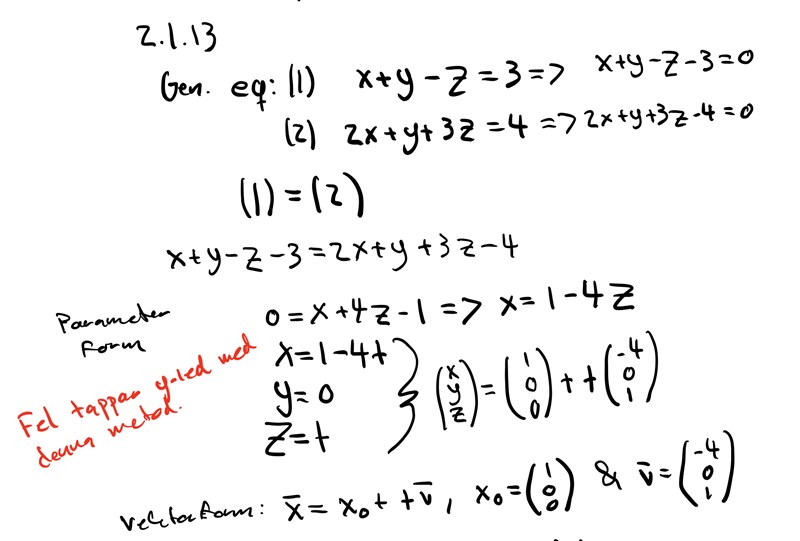 2.1.13
Gen. eq: (1) x+y-z=3 => x+y-z-3=0
(2) 2x+y+3z=4 => 2x+y+3z-4=0
(1)=(2)
x+y-z-3=2x+y+3z-4
0=x+4z-1 => x=1-4z
Parameter
form
x=1-4t
y=0
z=t
(x y z) = (1 0 0) + t (-4 0 1)
Fel tappar y-led med
denna metod.
Vektorform: x̄ = x₀ + t v̄, x₀ = (1 0 0) & v̄ = (-4 0 1)